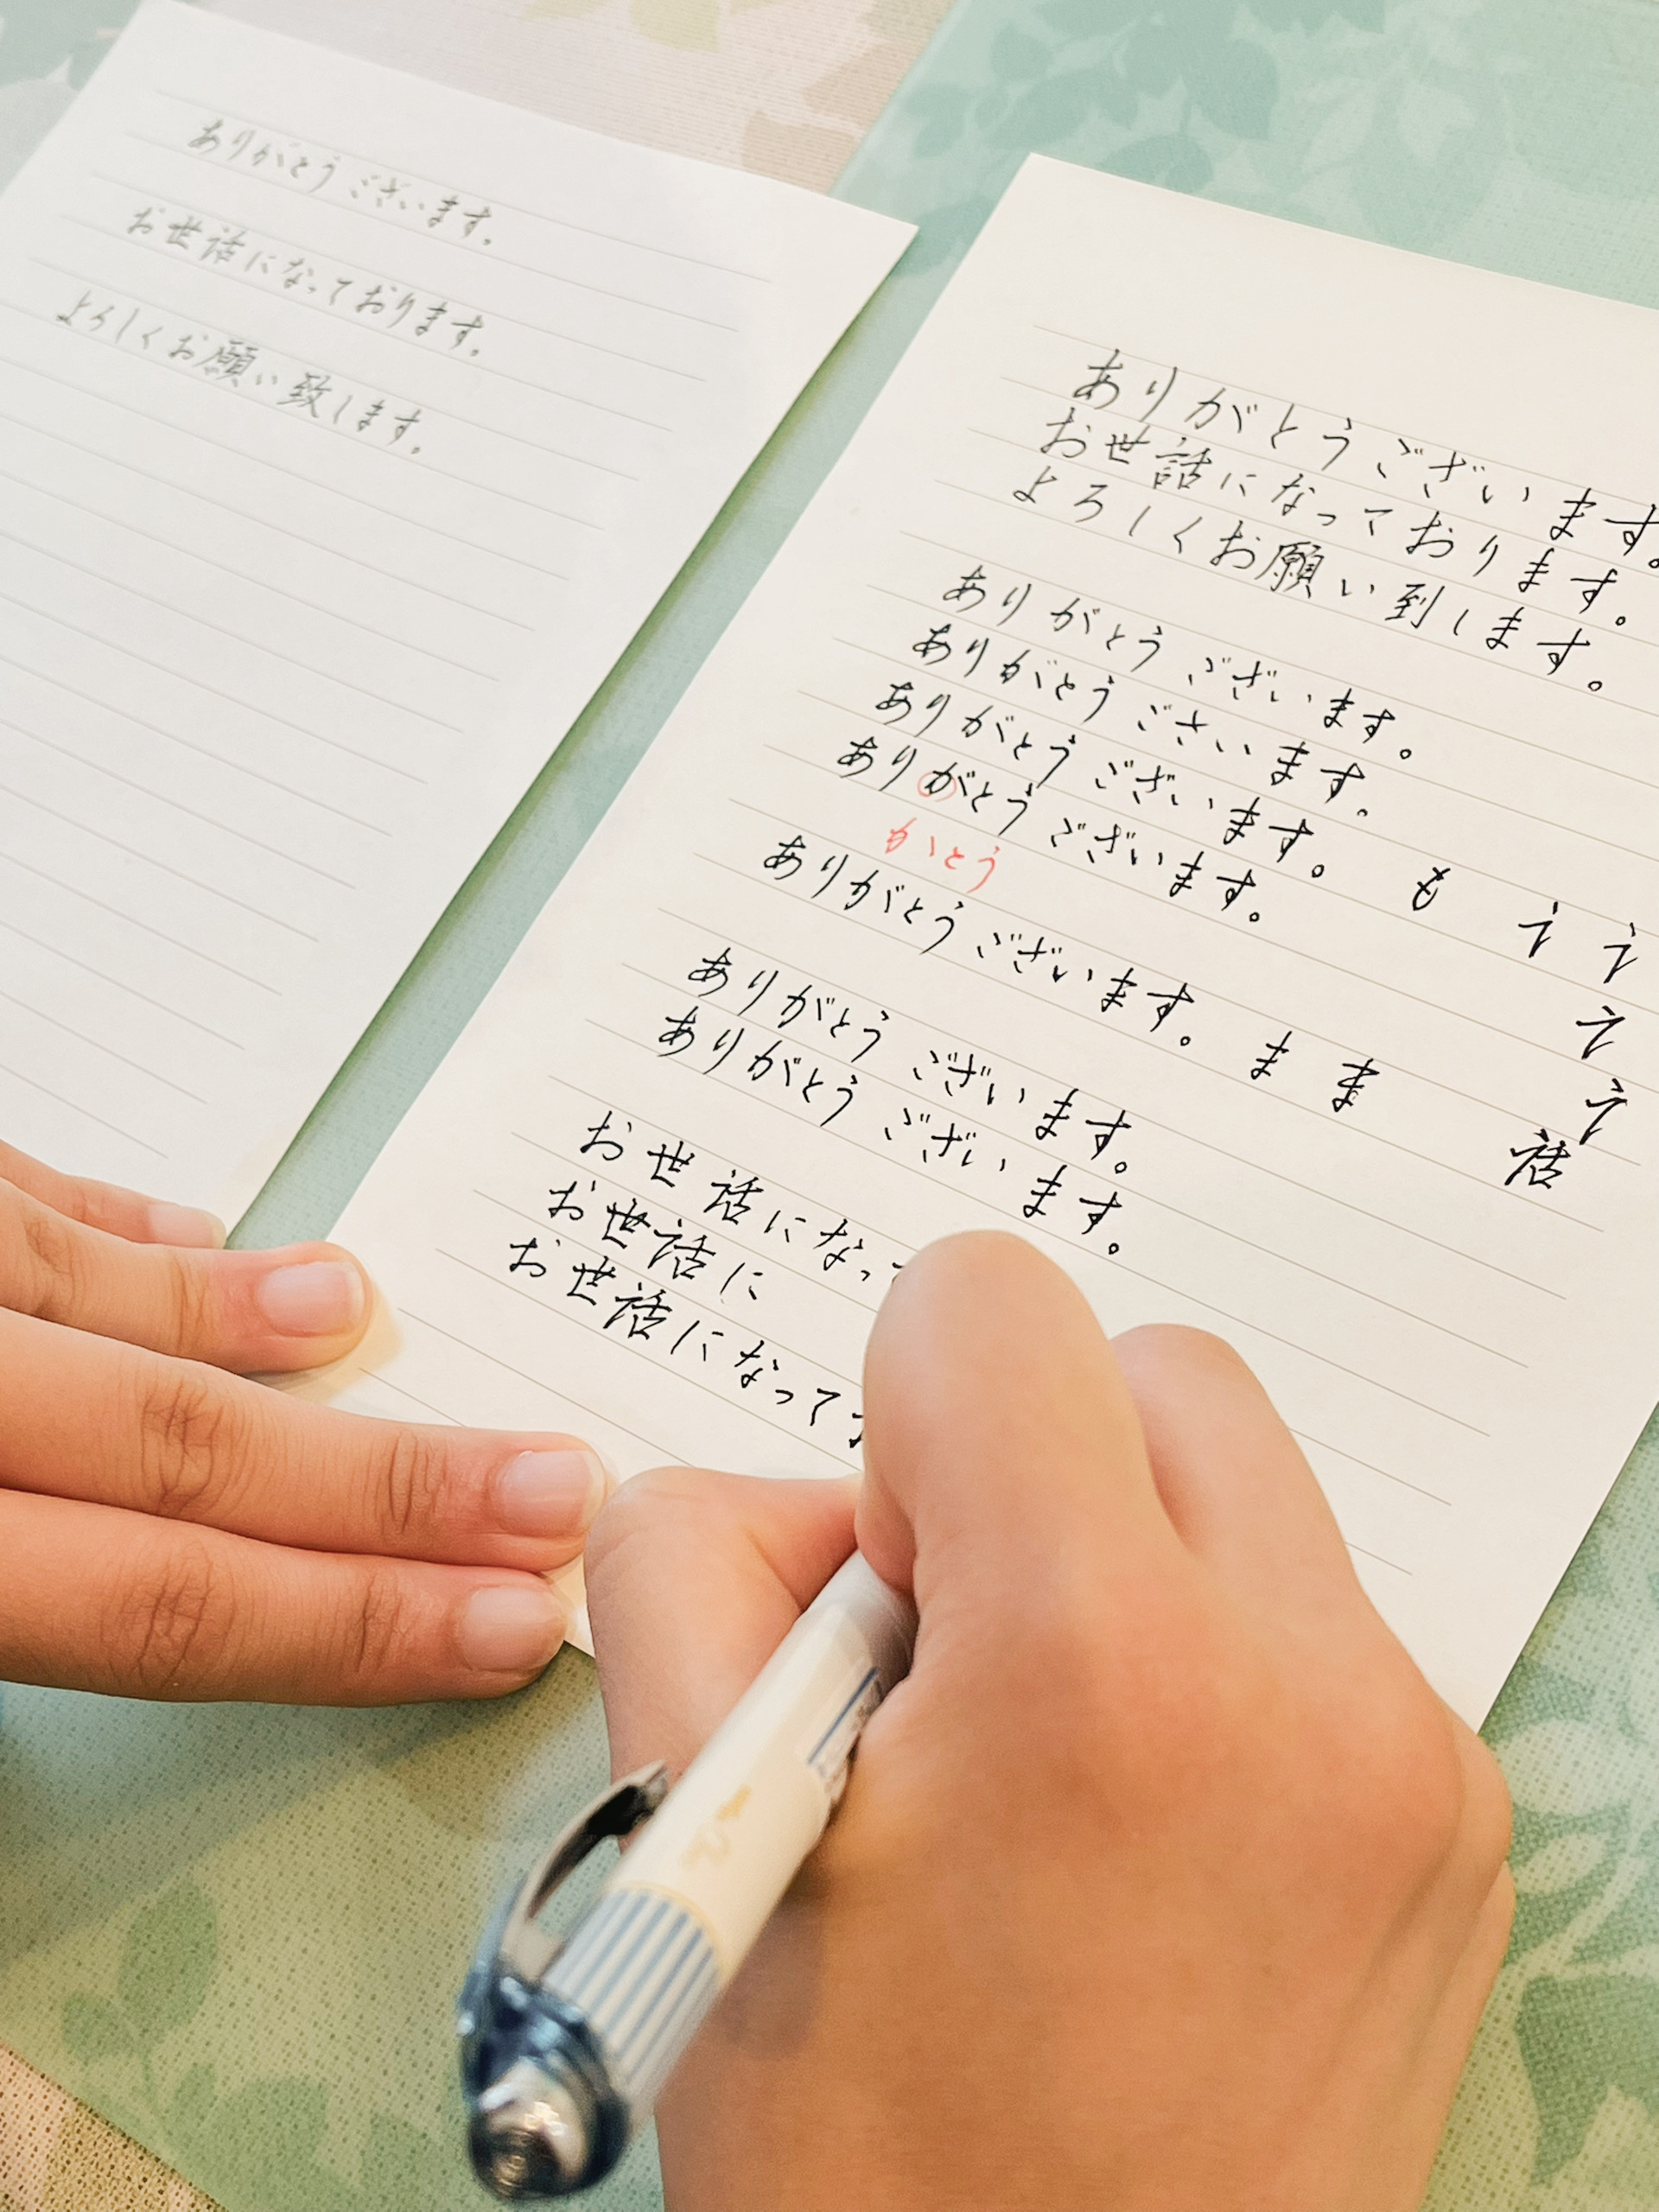 ありがとうございます。
お世話になっております。
よろしくお願い致します。
ありがとうございます。
お世話になっております。
よろしくお願い到します。
ありがとうございます。
ありがとうございます。
ありがとうございます。
ありがとうございます。
がとう
ありがとうございます。 ま ま
ありがとうございます。
ありがとうございます。
お世話になって
お世話に
お世話になって
も
話